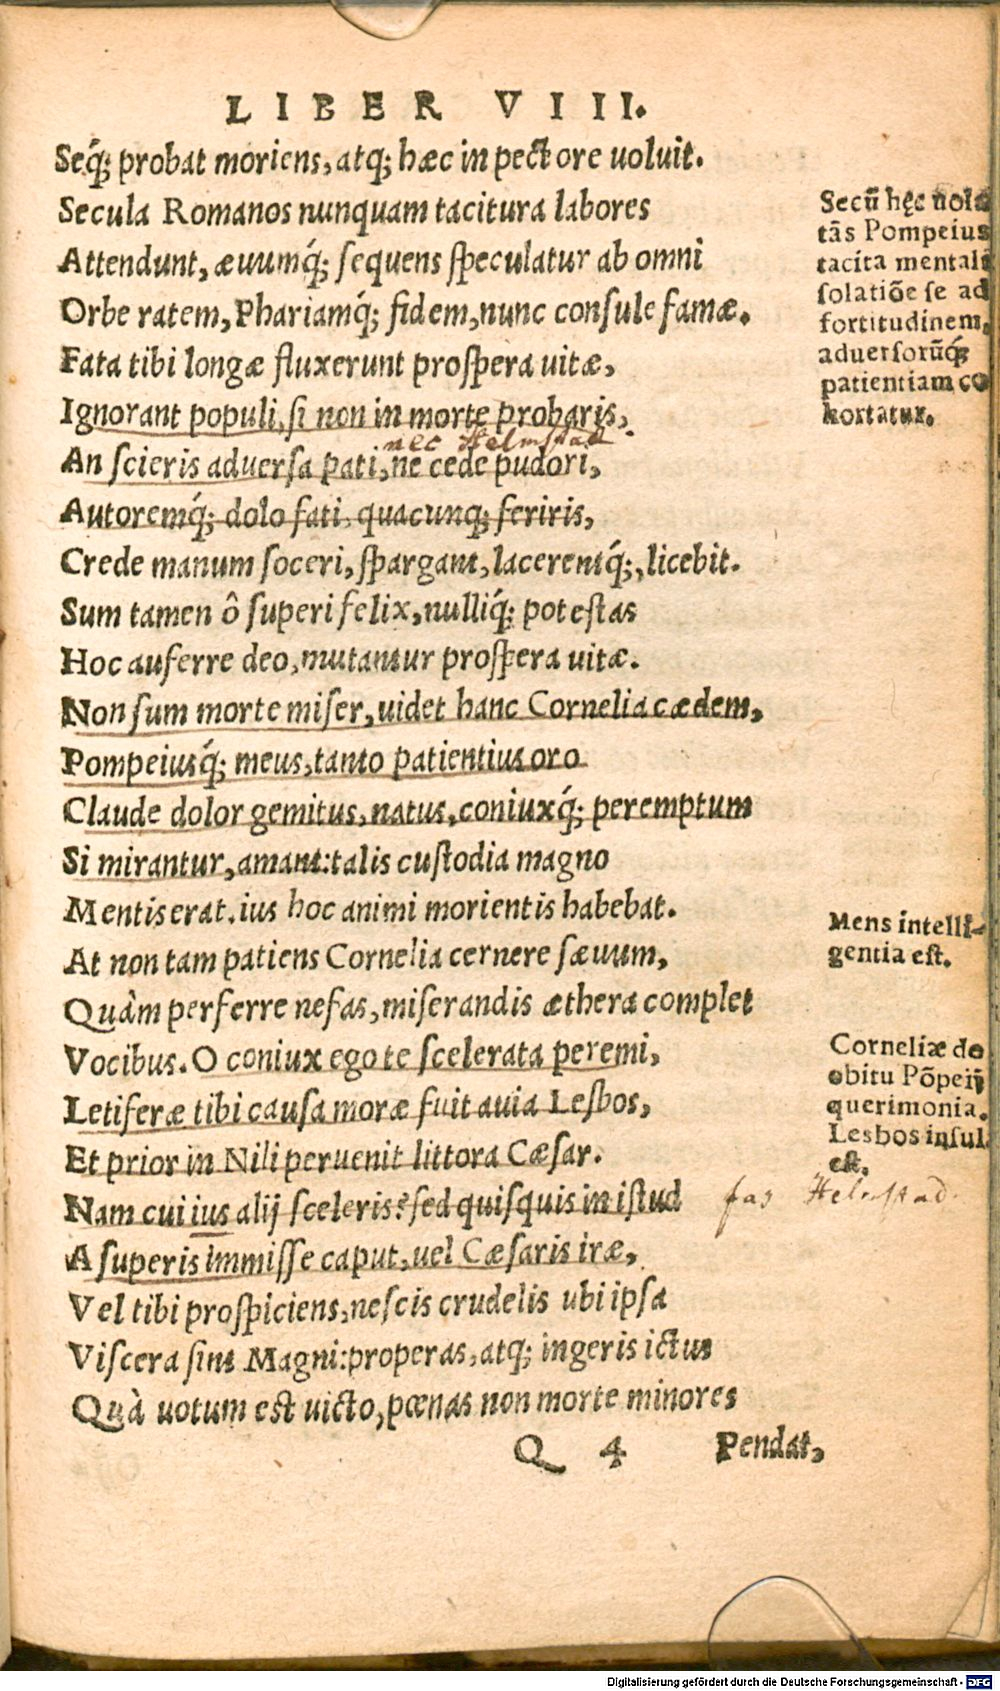 LIBER VIII.
Seq́; probat moriens, atq; hæc in pectore uoluit.
Secula Romanos nunquam tacitura labores
Attendunt, æuumq́; sequens speculatur ab omni
Orbe ratem, Phariamq́; fidem, nunc consule famæ.
Fata tibi longæ fluxerunt prospera uitæ,
Ignorant populi, si non in morte probaris,
nec Helmstad
An scieris aduersa pati, ne cede pudori,
Autoremq́; dolo fati, quacunq; feriris,
Crede manum soceri, spargant, lacerentq́;, licebit.
Sum tamen ô superi felix, nulliq́; potestas
Hoc auferre deo, mutantur prospera uitæ.
Non sum morte miser, uidet hanc Cornelia cædem,
Pompeiusq́; meus, tanto patientius oro
Claude dolor gemitus, natus, coniuxq́; peremptum
Si mirantur, amant: talis custodia magno
Mentis erat. ius hoc animi morientis habebat.
At non tam patiens Cornelia cernere sæuum,
Quàm perferre nefas, miserandis æthera complet
Vocibus. O coniux ego te scelerata peremi,
Letiferæ tibi causa moræ fuit auia Lesbos,
Et prior in Nili peruenit littora Cæsar.
Nam cui ius alij sceleris? sed quisquis in istud
A superis immisse caput, uel Cæsaris iræ,
Vel tibi prospiciens, nescis crudelis ubi ipsa
Viscera sint Magni: properas, atq; ingeris ictus
Quà uotum est uicto, pœnas non morte minores
Q 4 Pendat,
Secū hęc uolu
tās Pompeius
tacita mentali
solatiōe se ad
fortitudinem,
aduersorūq́;
patientiam co
hortatur.
Mens intelli-
gentia est.
Corneliæ de
obitu Pōpeij
querimonia.
Lesbos insula
est.
fas Helmstad.
Digitalisierung gefördert durch die Deutsche Forschungsgemeinschaft - DFG